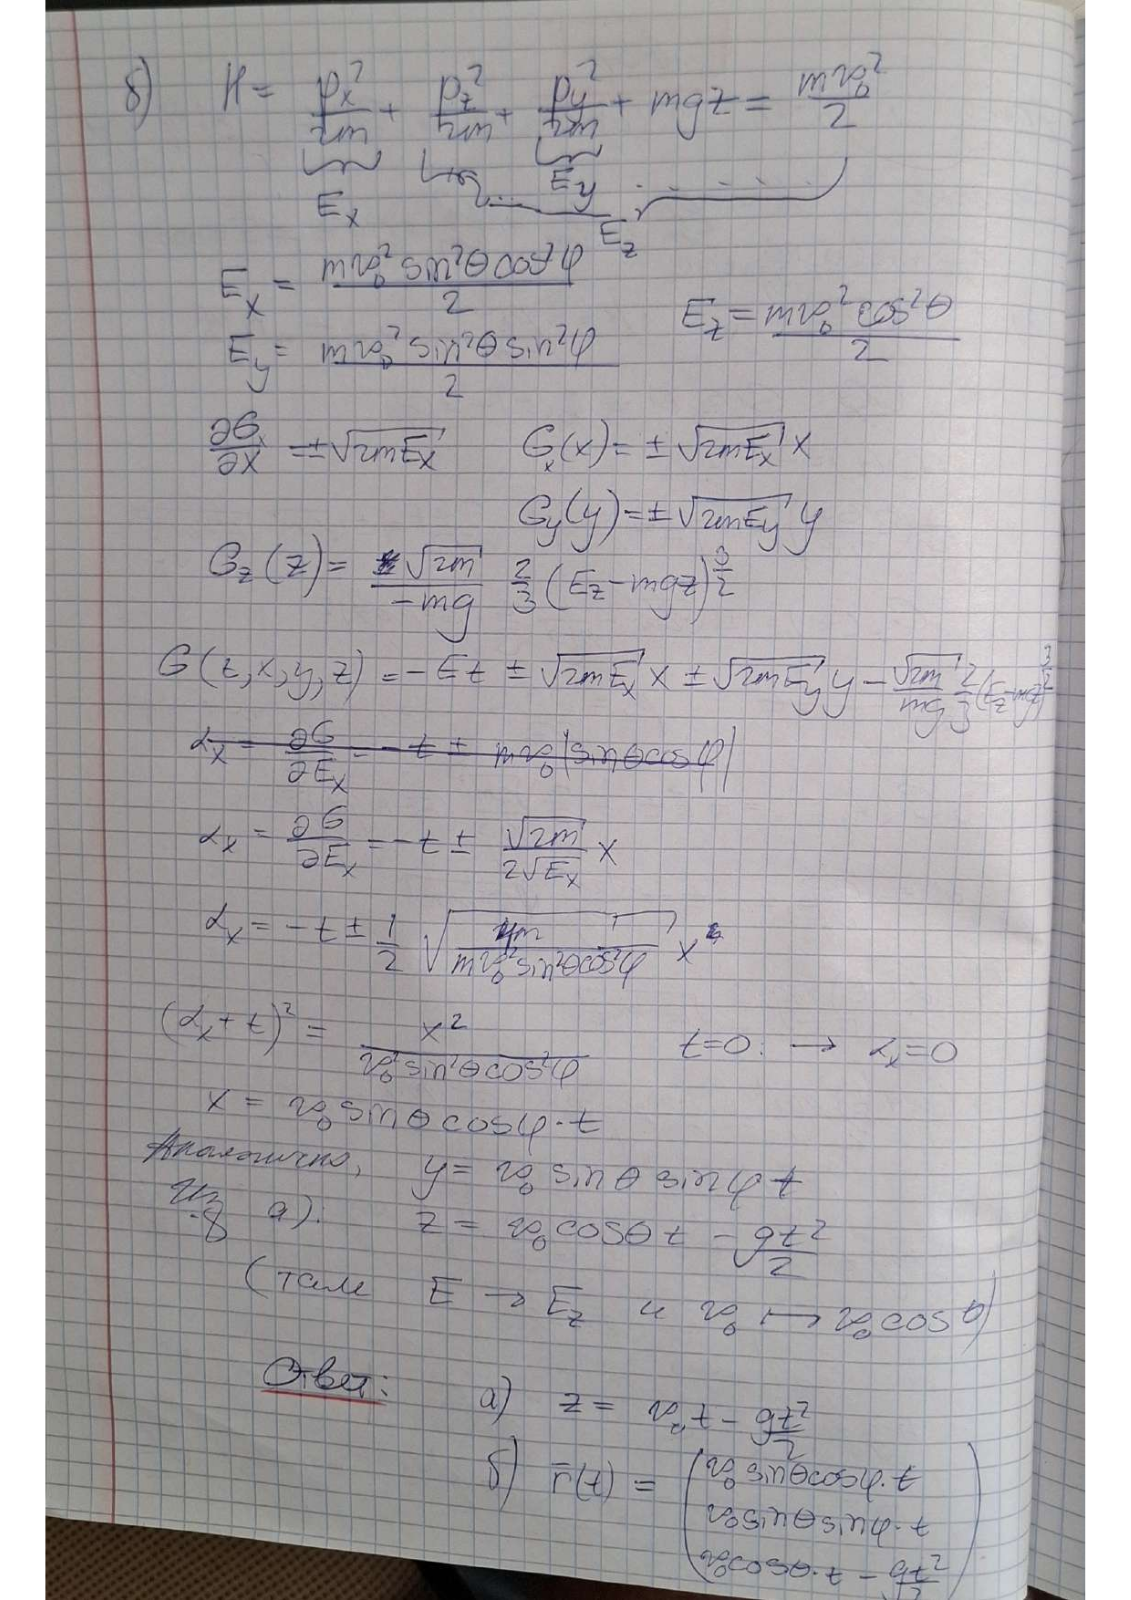 б) H = p_x^2/2m + p_z^2/2m + p_y^2/2m + mgz = mv_0^2/2
E_x E_y E_z
E_x = mv_0^2 sin^2θ cos^2φ / 2
E_z = mv_0^2 cos^2θ / 2
E_y = mv_0^2 sin^2θ sin^2φ / 2
∂G/∂x = ±√(2mE_x) G_x(x) = ±√(2mE_x) x
G_y(y) = ±√(2mE_y) y
G_z(z) = √(2m)/(-mg) 2/3 (E_z - mgz)^(3/2)
G(t,x,y,z) = -Et ± √(2mE_x) x ± √(2mE_y) y - √(2m)/mg 2/3 (E_z - mgz)^(3/2)
α_x = ∂G/∂E_x = -t ± mv_0|sinθcosφ|
α_x = ∂G/∂E_x = -t ± √(2m)/(2√E_x) x
α_x = -t ± 1/2 √(4m/(mv_0^2 sin^2θ cos^2φ)) x
(α_x + t)^2 = x^2/(v_0^2 sin^2θ cos^2φ) t=0: → α_x = 0
x = v_0 sinθ cosφ · t
Аналогично, y = v_0 sinθ sinφ t
Из а): z = v_0 cosθ t - gt^2/2
(там E → E_z и v_0 ↦ v_0 cosθ)
Ответ: а) z = v_0 t - gt^2/2
б) r̄(t) = (v_0 sinθ cosφ · t
v_0 sinθ sinφ · t
v_0 cosθ · t - gt^2/2)